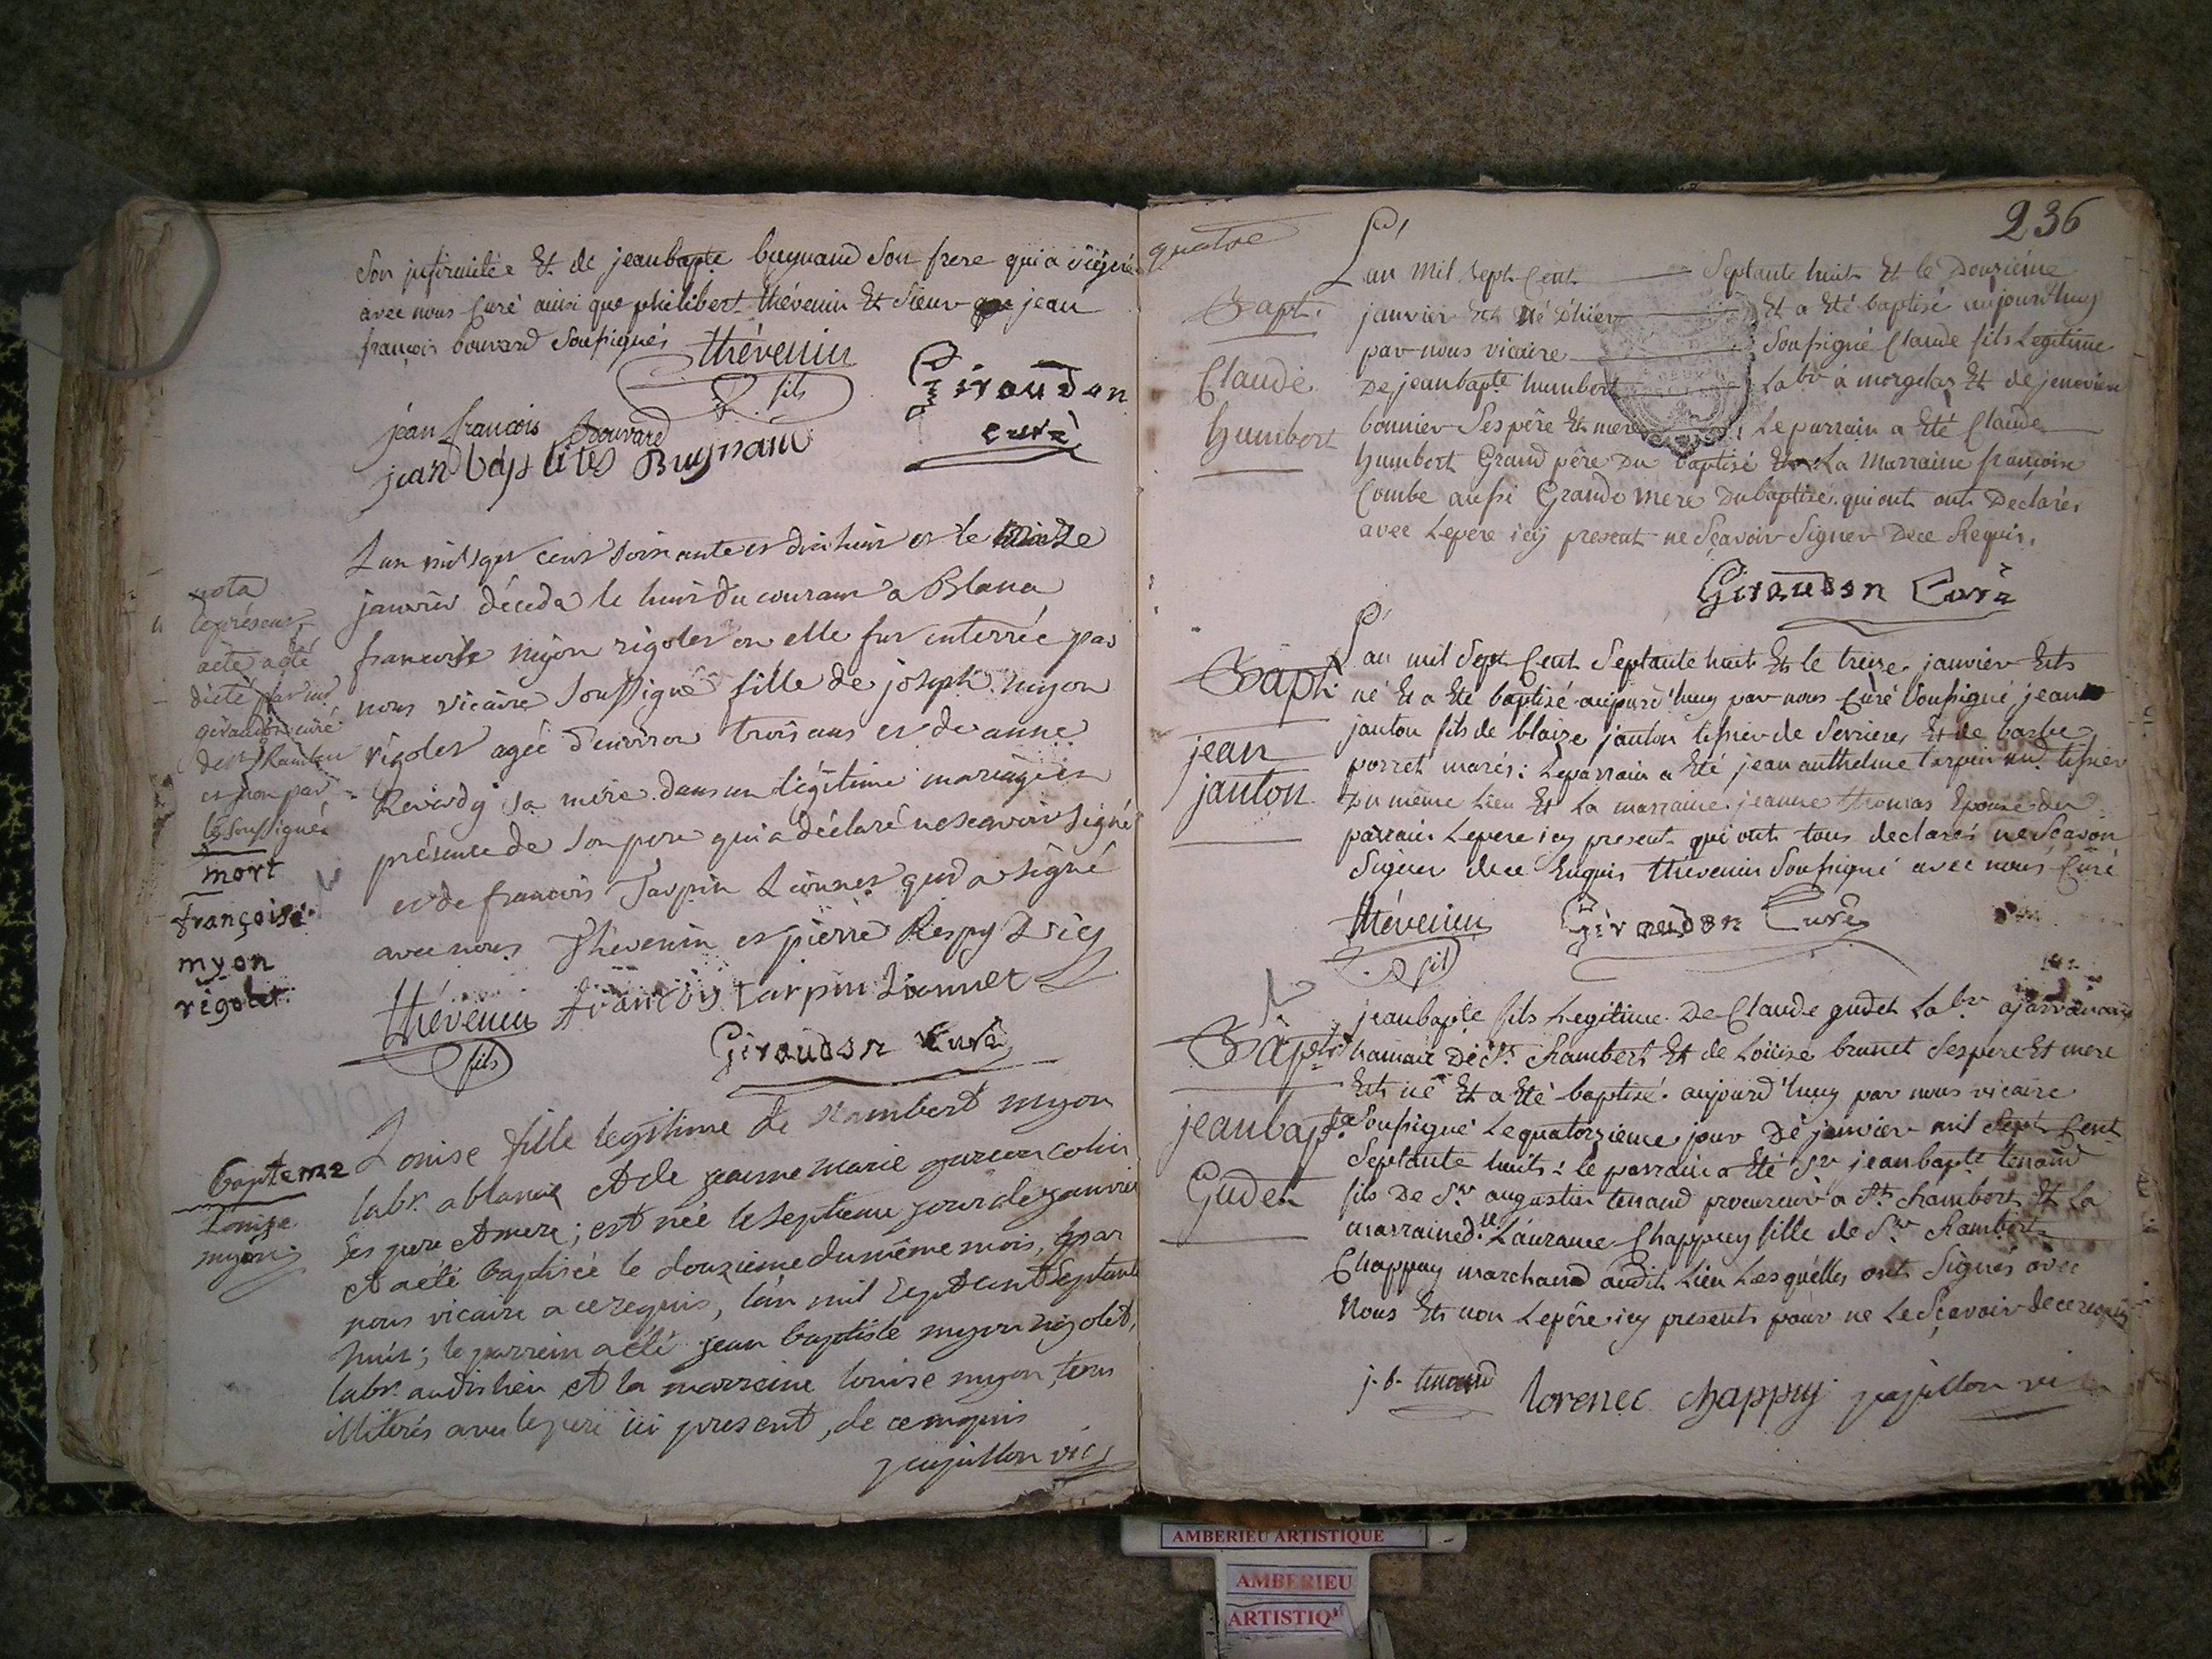 son infirmitée Et de jeanbapte buynand son frere qui a signé
avec nous Curé ainsi que philibert thévenin Et sieur jean
françois bouvard soussignés
thévenin
fils
Giraudon
curé
jean françois Bouvard
jean baptiste Buynand
L'an mil sept cent soixante et dix huit et le
janvier décéda le huit du courant a Blana
francoise myon rigolet ou elle fut enterrée par
nous vicaire soussigné fille de joseph myon
rigolet agée d'environ trois ans et de anne
Ravardy sa mere dans un légitime mariage en
présence de son pere qui a déclaré ne scavoir signé
et de francois Tarpin Lionnet qui a signé
avec nous Thevenin et pierre Respy Vic
nota
le présent
acte a été
dicté par mr
giraudon curé
de st Rambert
et non par
le soussigné
mort
françoise
myon
rigolet
thévenin
fils
françois tarpin Lionnet
Giraudon Curé
bapteme
Louise
myon
Louise fille legitime de Rambert myon
labr. a blanaz et de jeanne marie garcon colin
ses pere et mere; est née le septieme jour de janvier
et a été baptisée le douzieme du même mois, par
nous vicaire a ce requis, l'an mil sept cent septante
huit; le parrein a été jean baptiste myon rigolet,
labr. audit lieu et la marreine louise myon, tous
illiterés avec le pere ici present, de ce requis
papillon vic
quatre
236
L'an mil sept Cent septante huit Et le Douzième
janvier Est né D'hier Et a Eté baptisé aujourdhuy
par nous vicaire soussigné Claude fils Legitime
De jeanbapte humbert Labr à morgelas Et de jenevieve
bonnier ses père Et mere Le parrain a Eté Claude
humbert Grand père Du baptisé La Marraine françoise
Combe aussi Grande mere Du baptisé qui ont ont Declarés
avec Le pere icy present ne Sçavoir Signer De ce Requis.
Bapt.
Claude
humbert
Giraudon Curé
L'an mil sept Cent Septante huit Et le treize janvier Est
né Et a Eté baptisé aujourd'huy par nous Curé soussigné, jean
janton fils de blaise janton tissier de Serrieres Et de barbe
porret mariés: Le parrain a Eté jean anthelme tarpin tissier
Du même Lieu Et La marraine jeanne thomas Epouse du
parrain Le pere icy present qui ont tous declarés ne Sçavoir
Signer de ce Enquis thévenin Soussigné avec nous Curé
Bapt
jean
janton
thévenin
fils
Giraudon Curé
jeanbapte fils Legitime De Claude gudet Labr. a javornoz
hamair De St Rambert Et de Loüise brunet Ses pere Et mere
Est né Et a Eté baptisé aujourd'huy par nous vicaire
Soussigné Le quatorzieme jour De janvier mil Sept Cent
Septante huit: le parrain a Eté Sr. jeanbapte tenand
fils De Sr. augustin tenand procureur a St. Rambert Et La
marraine d.lle Laurance Chappuy fille de Sr. Rambert
Chappuy marchand audit Lieu Lesquelles ont Signés avec
Nous Et non Le père icy present pour ne Le Sçavoir de ce requis
Bapt
jeanbapte
Gudet
j. b. tenand
lorenec chappuy
papillon vic
AMBERIEU ARTISTIQUE
AMBERIEU
ARTISTIQ